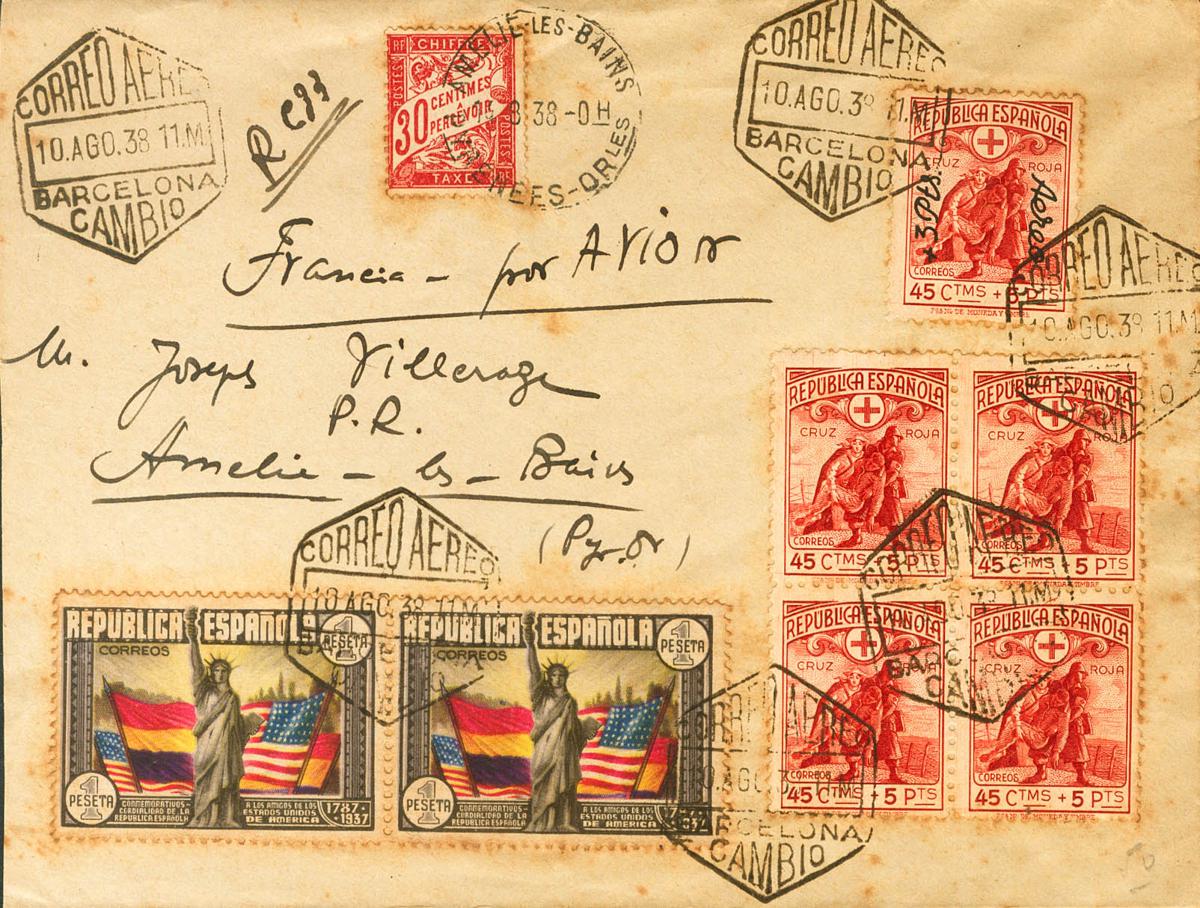 CORREO AEREO
10.AGO.38 11.M
BARCELONA
CAMBIO
R C33
RF CHIFFRE
POSTES
30 CENTIMES
PERCEVOIR
POSTES
TAXE RF
AMELIE-LES-BAINS
8 38 -0H
PYRENEES-ORLES
CORREO AEREO
10.AGO.38 11.M
BARCELONA
CAMBIO
REPUBLICA ESPAÑOLA
CRUZ ROJA
+ 3 Pts. Aereo
CORREOS
45 CTMS + 5 PTS
CORREO AEREO
10.AGO.38 11.M
CAMBIO
Francia - por AVION
M. Joseph Villeroge
P.R.
Amelie - les - Bains
(Pyr. Or)
REPUBLICA ESPAÑOLA
CRUZ ROJA
CORREOS
45 CTMS + 5 PTS
REPUBLICA ESPAÑOLA
CRUZ ROJA
45 CTMS + 5 PTS
CORREO AEREO
11.M
BARCELONA
CAMBIO
REPUBLICA ESPAÑOLA
CRUZ ROJA
CORREOS
45 CTMS + 5 PTS
REPUBLICA ESPAÑOLA
CRUZ ROJA
CORREOS
45 CTMS + 5 PTS
CORREO AEREO
10.AGO.38 11.M
REPUBLICA ESPAÑOLA
CORREOS
1 PESETA
1 PESETA
CONMEMORATIVOS-
CORDIALIDAD DE LA
REPUBLICA ESPAÑOLA
A LOS AMIGOS DE LOS
ESTADOS UNIDOS
DE AMERICA
1787-
1937
REPUBLICA ESPAÑOLA
CORREOS
1 PESETA
1 PESETA
CONMEMORATIVOS-
CORDIALIDAD DE LA
REPUBLICA ESPAÑOLA
A LOS AMIGOS DE LOS
ESTADOS UNIDOS
DE AMERICA
CORREO AEREO
BARCELONA
CAMBIO